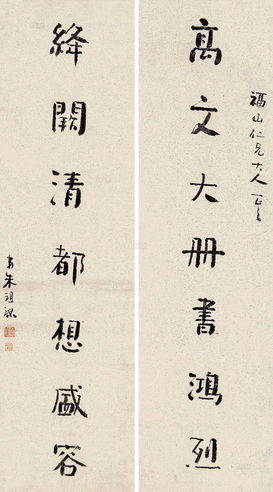 福山仁兄大人正之
高文大册書鴻烈
絳闕清都想盛容
朱祖謀